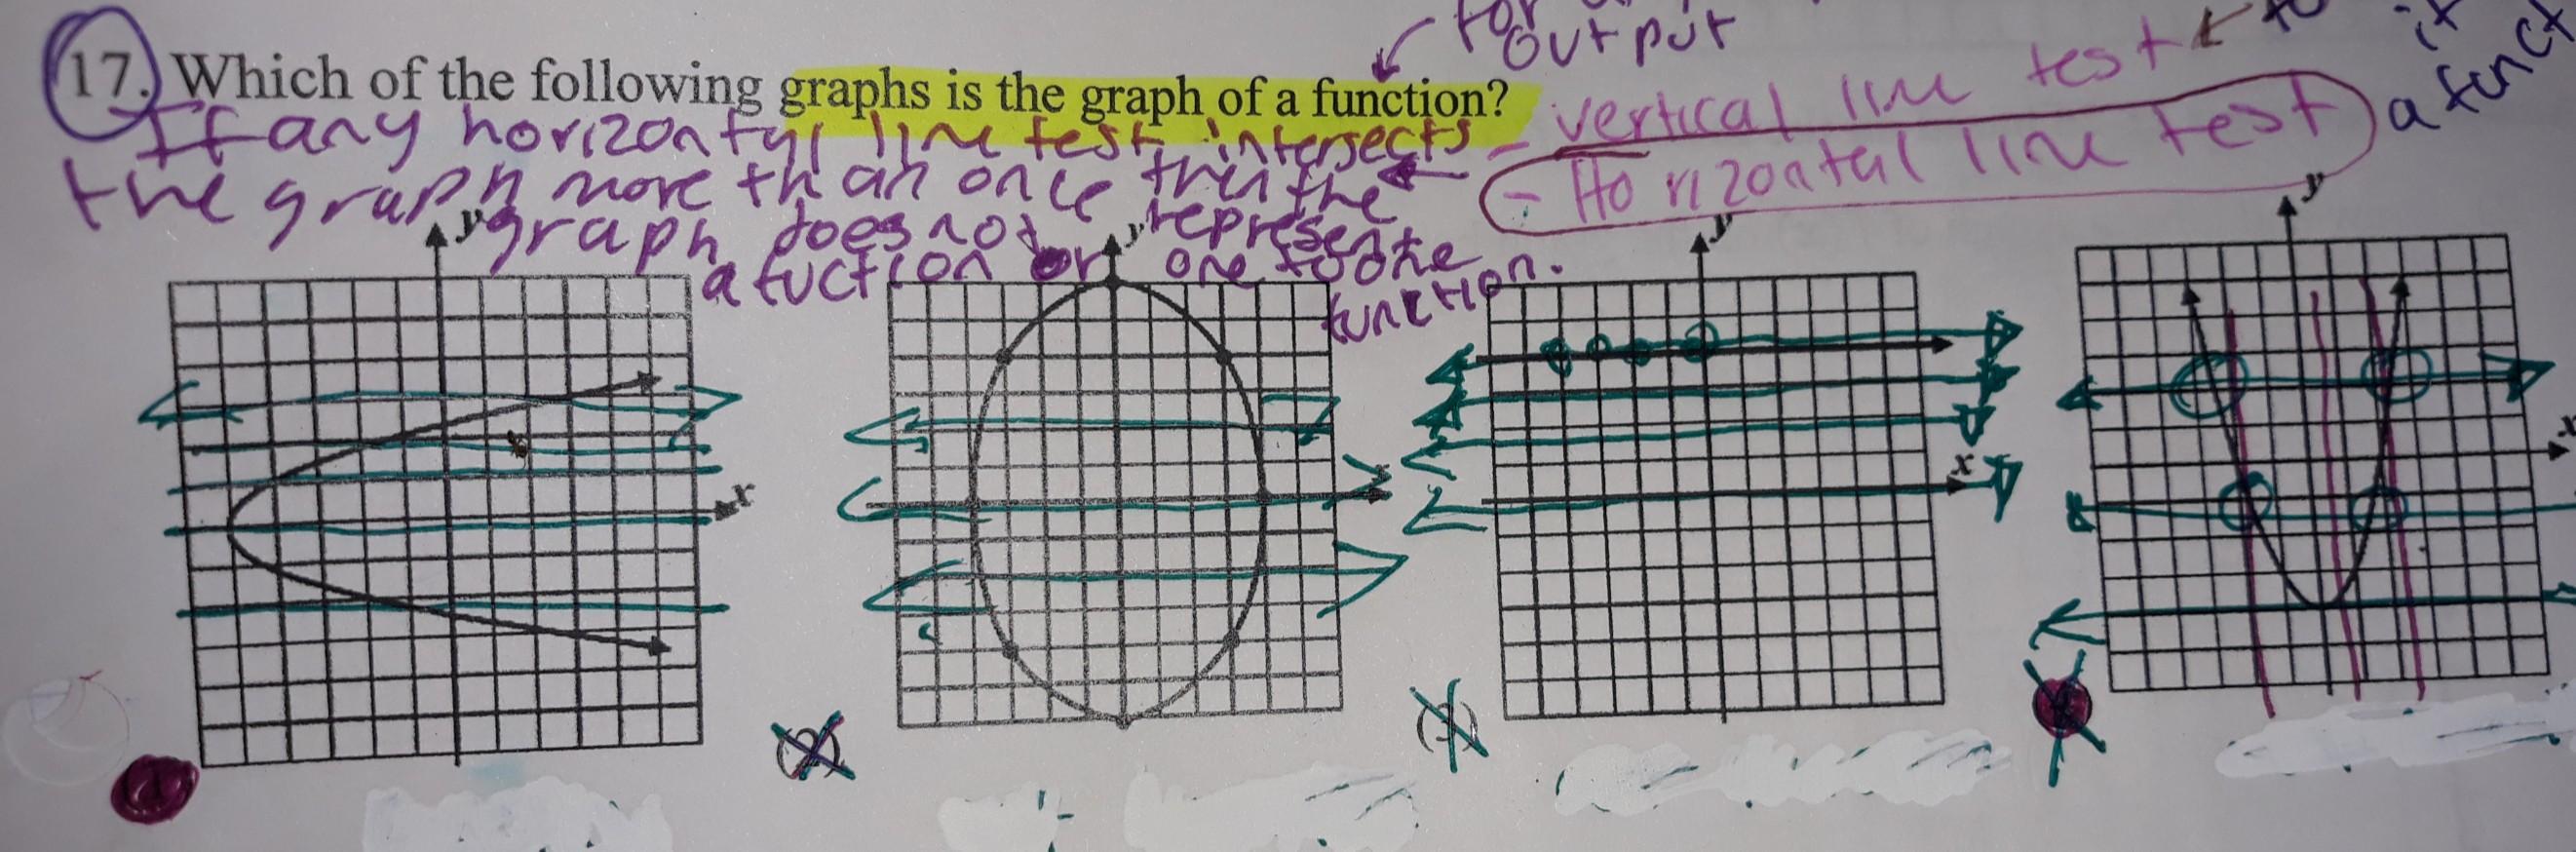 for
output
17. Which of the following graphs is the graph of a function?
- vertical line test
it
a funct
If any horizontal line test intersects
- Horizontal line test
the graph more than once then the
graph does not represent
a fuction or one to one
function.
y
y
y
y
x
x
x
x
(2)